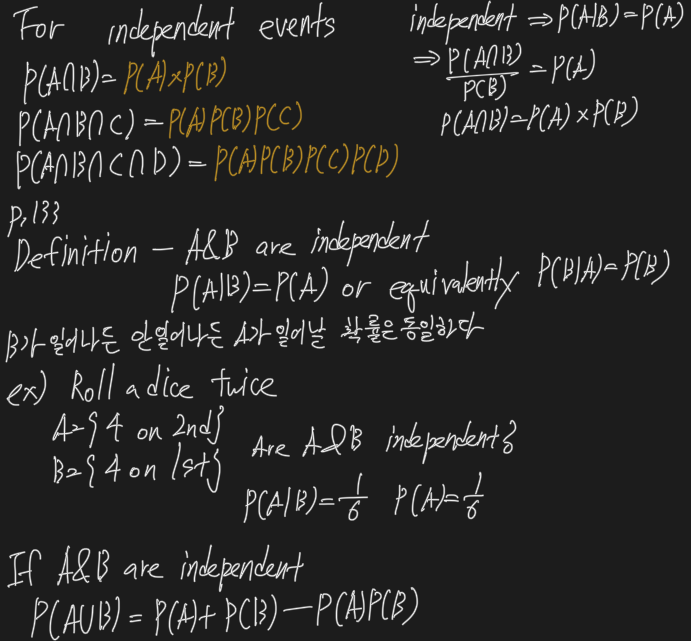 For independent events
P(A∩B)= P(A)×P(B)
P(A∩B∩C) = P(A)P(B)P(C)
P(A∩B∩C∩D) = P(A)P(B)P(C)P(D)
independent ⇒ P(A|B)=P(A)
⇒ P(A∩B)/P(B) = P(A)
P(A∩B)=P(A)×P(B)
p.133
Definition – A&B are independent
P(A|B)=P(A) or equivalently P(B|A)=P(B)
B가 일어나든 안일어나든 A가 일어날 확률은 동일하다
ex) Roll a dice twice
A={4 on 2nd}
B={4 on 1st}
Are A&B independent?
P(A|B)=1/6 P(A)=1/6
If A&B are independent
P(A∪B) = P(A)+P(B)–P(A)P(B)